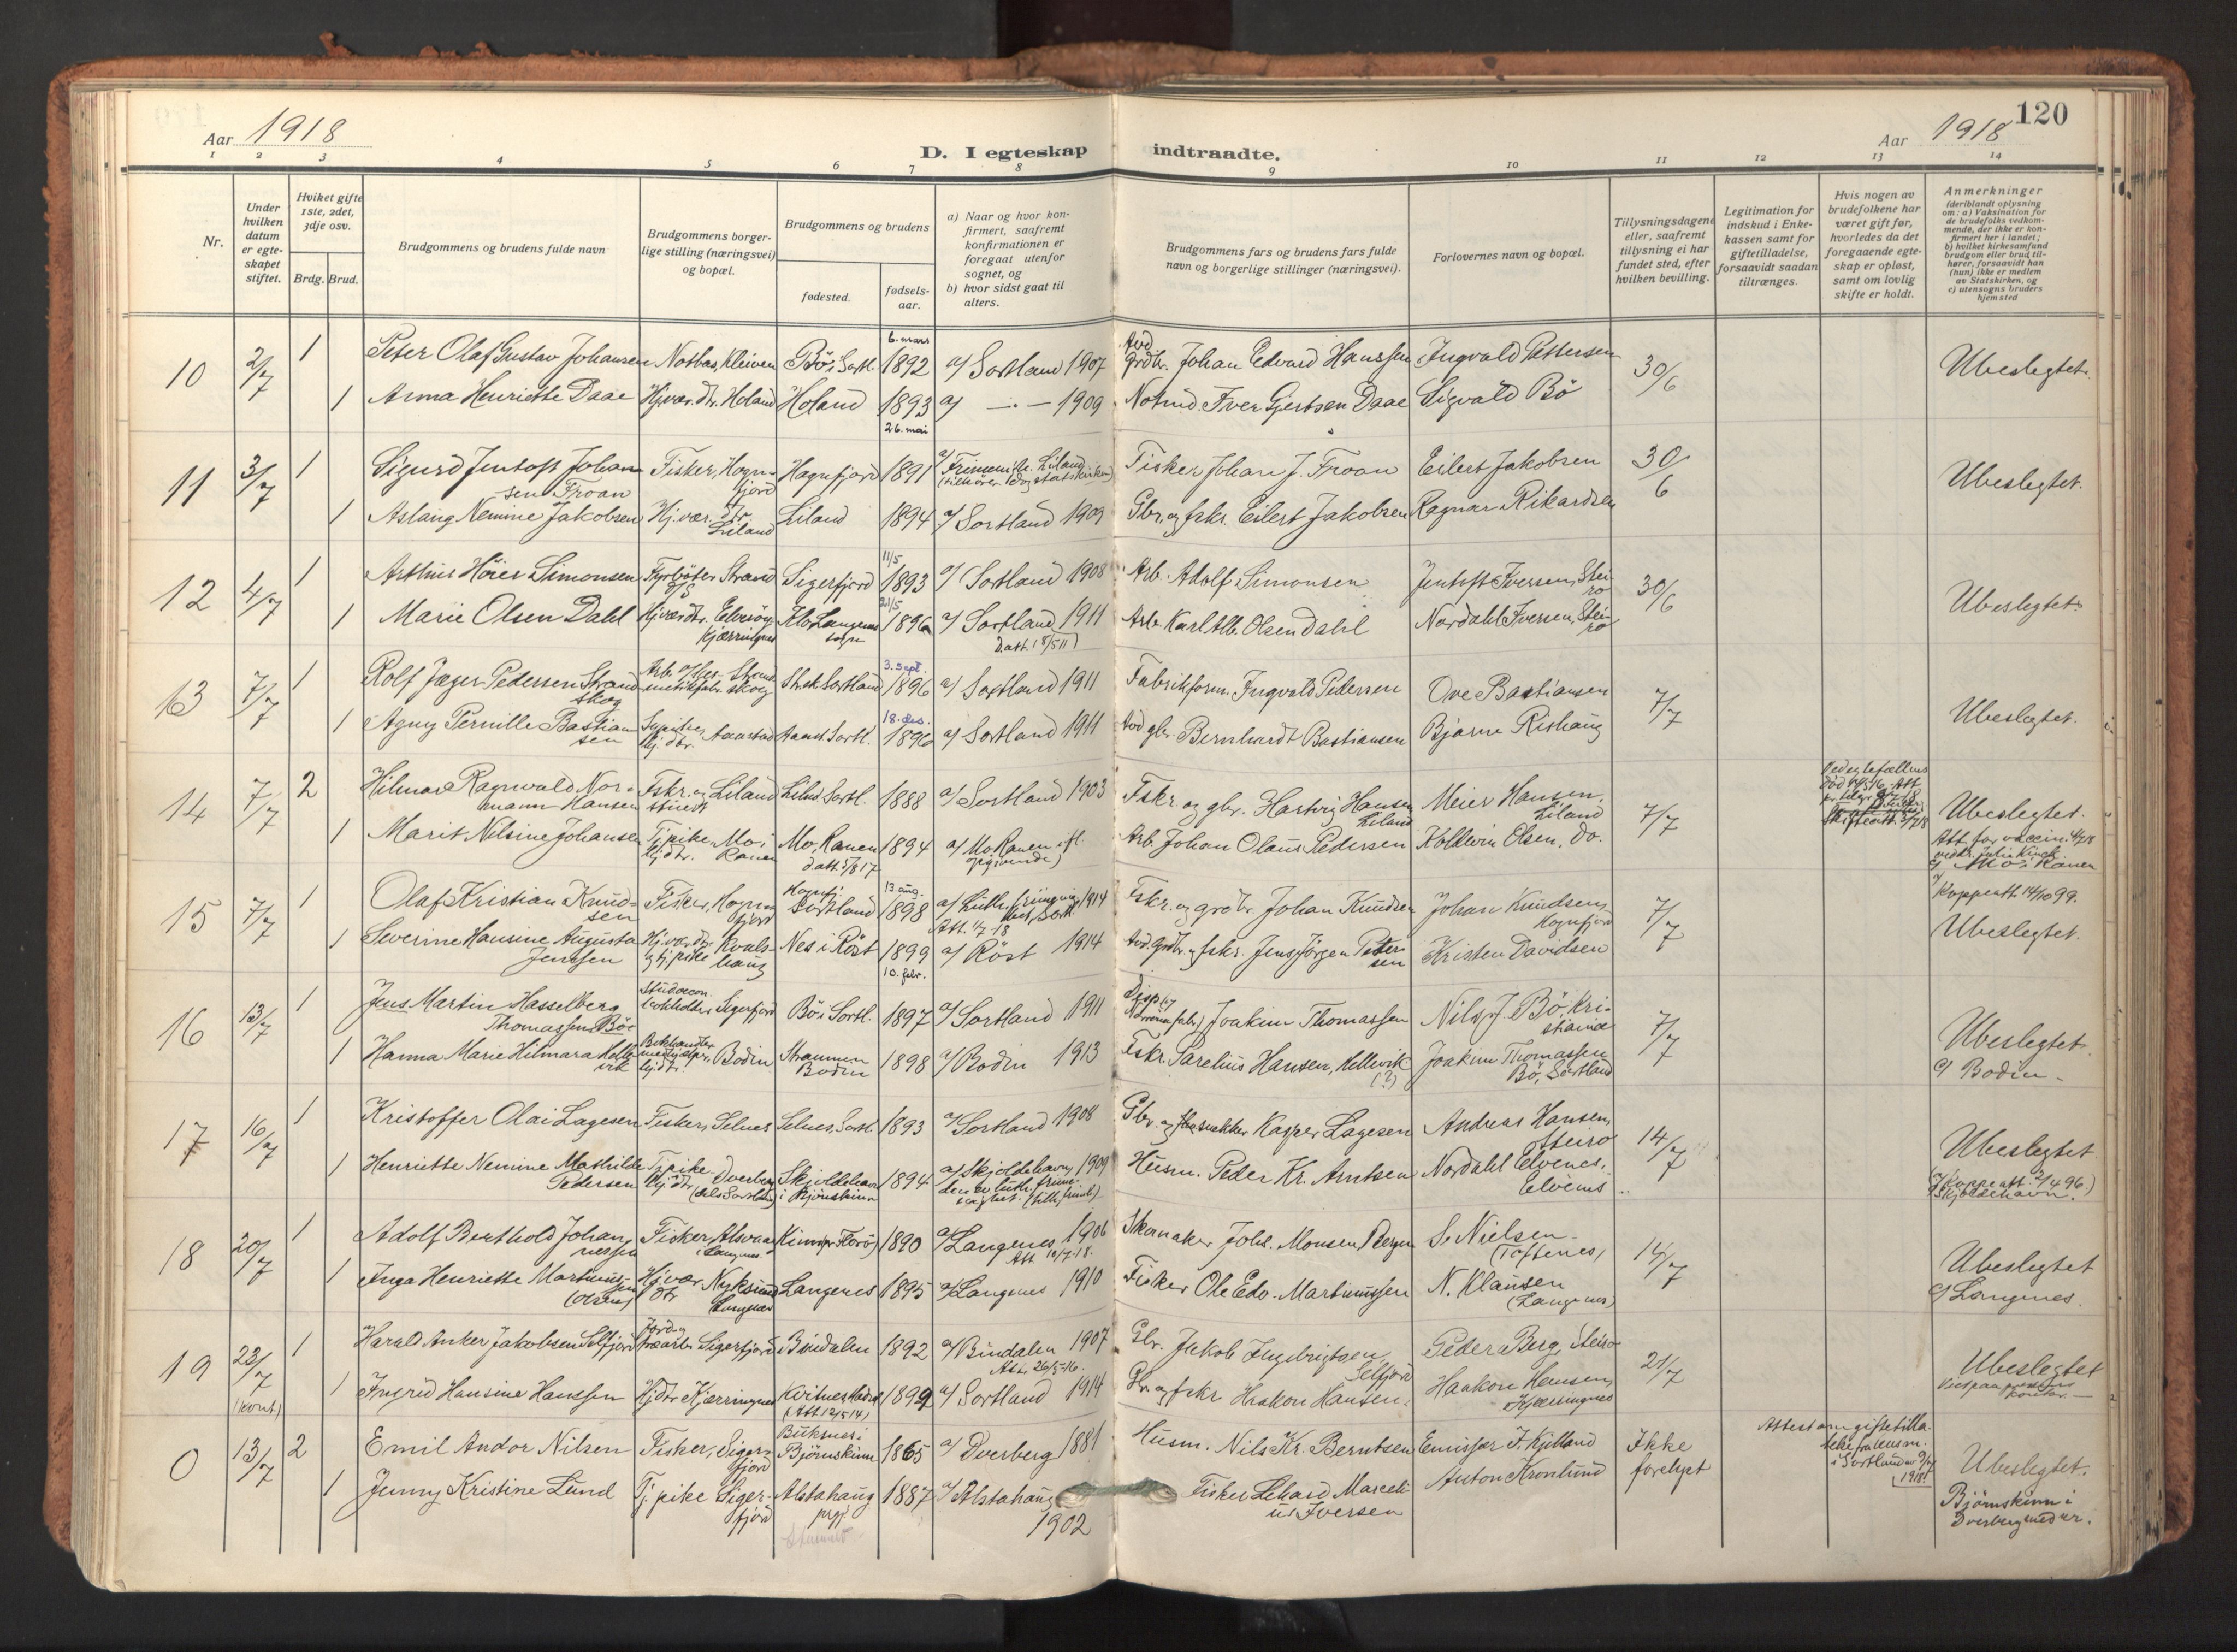 120
Aar 1918
D. I egteskap indtraadte.
Aar 1918
1 2 3 4 5 6 7 8 9 10 11 12 13 14
Nr.
Under hvilken datum er egteskapet stiftet.
Hviket gifte 1ste, 2det, 3dje osv.
Brdg. Brud.
Brudgommens og brudens fulde navn
Brudgommens borgerlige stilling (næringsvei) og bopæl.
Brudgommens og brudens
fødested.
fødselsaar.
a) Naar og hvor konfirmert, saafremt konfirmationen er foregaat utenfor sognet, og
b) hvor sidst gaat til alters.
Brudgommens fars og brudens fars fulde navn og borgerlige stillinger (næringsvei).
Forlovernes navn og bopæl.
Tillysningsdagene eller, saafremt tillysning ei har fundet sted, efter hvilken bevilling.
Legitimation for indskud i Enkekassen samt for giftetilladelse, forsaavidt saadan tiltrænges.
Hvis nogen av brudefolkene har været gift før, hvorledes da det foregaaende egteskap er opløst, samt om lovlig skifte er holdt.
Anmerkninger (deriblandt oplysning om: a) Vaksination for de brudefolks vedkommende, der ikke er konfirmert her i landet; b) hvilket kirkesamfund brudgom eller brud tilhører, forsaavidt han (hun) ikke er medlem av Statskirken, og c) utensogns bruders hjemsted
10 2/7 1 Peter Olaf Gustav Johansen Notbas, Kleiven Bö i Sortl. 6. mars 1892 a/ Sortland 1907 Avd grdbr. Johan Edvard Hanssen Ingvald Pettersen 30/6 Ubeslegtet.
1 Anna Henriette Daae Hj.vær. dtr. Holand Holand 1893 26. mai a/ — 1909 Notmd. Iver Gjertsen Daae Sigvald Bö
11 3/7 1 Sigurd Jentoft Johansen Froan Fisker, Hognfjord Hognfjord 1891 a/ Frimenigh. Liland (tilhører dog statskirken) Fisker Johan J. Froan Eilert Jakobsen 30/6 Ubeslegtet.
1 Aslaug Nemine Jakobsen Hj.vær. dtr. Liland Liland 1894 a/ Sortland 1909 Gbr. og fskr. Eilert Jakobsen Ragnar Rikardsen
12 4/7 1 Arthur Höier Simonsen Fyrböter Strand Sigerfjord 11/5 1893 a/ Sortland 1908 Arb. Adolf Simonsen Jentoft Iversen, Steiro 30/6 Ubeslegtet.
1 Marie Olsen Dahl Hj.vær dtr. Kjærringnes Klo Langenes sogn 21/5 1896 a/ Sortland 1911 D.att. 18/5 11) Arb. Karl Alb. Olsen Dahl Nordahl Iversen, Steiro
13 7/7 1 Rolf Jæger Pedersen Strandskog Arb. Strandskog Strsk. Sortland 3. sept. 1896 a/ Sortland 1911 Fabrikform. Ingvald Pedersen Ove Bastiansen 7/7 Ubeslegtet.
1 Agny Pernille Bastiansen Hj. dtr. Aanstad Aanst. Sortl. 18. des. 1896 a/ Sortland 1911 Avd gbr. Bernhardt Bastiansen Bjarne Rishaug
14 7/7 2 Hilmar Ragnvald Normann Hansen Fskr. og Liland Liland Sortl. 1888 a/ Sortland 1903 Fskr. og gbr. Hartvig Hansen Liland Meier Hansen, Liland 7/7 Ubeslegtet.
1 Marit Nilsine Johansen Tj.pike, Mo i Ranen Hj. dtr. Mo, Ranen d.att. 5/8 17 1894 a/ Mo, Ranen Arb. Johan Olaus Pedersen Koldevin Olsen, do. Att. for vaccin. 4/7 18 c/ Mo i Ranen
15 7/7 1 Olaf Kristian Knudsen Fisker, Hognfjord Hognfj. Sortland 13 aug. 1898 a/ Luth. frimenig. 1914 Att. 1/7-18 Fskr. og grdbr. Johan Knudsen Johan Knudsen, Hognfjord 7/7 Koppeatt. 14/10 99. Ubeslegtet.
1 Severine Hansine Augusta Jentsen Hj.vær. dtr. og tj.pike Kvalshaug Nes i Röst 1899 10. febr. a/ Röst 1914 Avd. grdbr. og fskr. Jens Jörgen Petersen Kristen Davidsen
16 13/7 1 Jens Martin Hasselberg Thomassen Böe Sigerfjord Bö i Sortl. 1897 a/ Sortland 1911 Joakim Thomassen Nils J. Bö, Kristiania 7/7 Ubeslegtet.
1 Hanna Marie Hilmara Hellevik Bodin Straumen Bodin 1898 a/ Bodin 1913 Fskr. Sarelius Hansen, Hellevik (?) Joakim Thomassen Bö, Sortland c/ Bodin
17 16/7 1 Kristoffer Olai Lagesen Fisker, Selnes Selnes, Sortl. 1893 a/ Sortland 1908 Gbr. og Kasper Lagesen Andreas Hansen, Steiro 14/7 Ubeslegtet
1 Henriette Nemine Mathilde Pedersen Tj.pike Hj. dtr. Dverberg Skjoldehavn i Bjørnskinn 1894 a/ Skjoldehavn, 1909 Husm. Peder Kr. Arntsen Nordahl Elvenes, Elvenes (Koppeatt. 2/4 96) c/ Skjoldehavn.
18 20/7 1 Adolf Berthold Johannessen Fisker, Alsvaag i Langenes Kinn (pr Florø) 1890 a/ Langenes 1906 Att. 10/7-18. Skomaker Johs. Monsen, Bergen S. Nielsen (Toftenes) 14/7 Ubeslegtet
1 Inga Henriette Martinussen (Olsen) Hj.vær. dtr Nyksund Langenes Langenes 1895 a/ Langenes 1910 Fisker Ole Edv. Martinussen N. Klausen (Langenes) c/ Langenes.
19 23/7 (Kont.) 1 Harald Anker Jakobsen Selfjord Sigerfjord Bindalen 1892 a/ Bindalen 1907 Att. 26/5-16. Gbr. Jakob Ingebrigtsen, Selfjord Peder Berg, Steiro 21/7 Ubeslegtet
1 Ingrid Hansine Hanssen Hj.dtr Kjærringnes Kvitnes Hadsel (Att 12/5 14) 1899 a/ Sortland 1914 Gbr. og fskr Haakon Hansen. Haakon Hansen, Kjærringnes
0 13/7 2 Emil Andor Nilsen Fisker, Sigerfjord Buksnes i Bjørnskinn 1865 a/ Dverberg 1881 Husm. Nils Kr. Berntsen Emissær J. Kjelland Ikke forelyst Attest om giftetilladelse fra lensm. i Sortland av 9/7 1918 Ubeslegtet.
1 Jenny Kristine Lund Tj. pike Sigerfjord Alstahaug prgj. 1887 a/ Alstahaug 1902 Fisker Lehard Marcelius Iversen Anton Kronlund Bjørnskinn i Dverberg